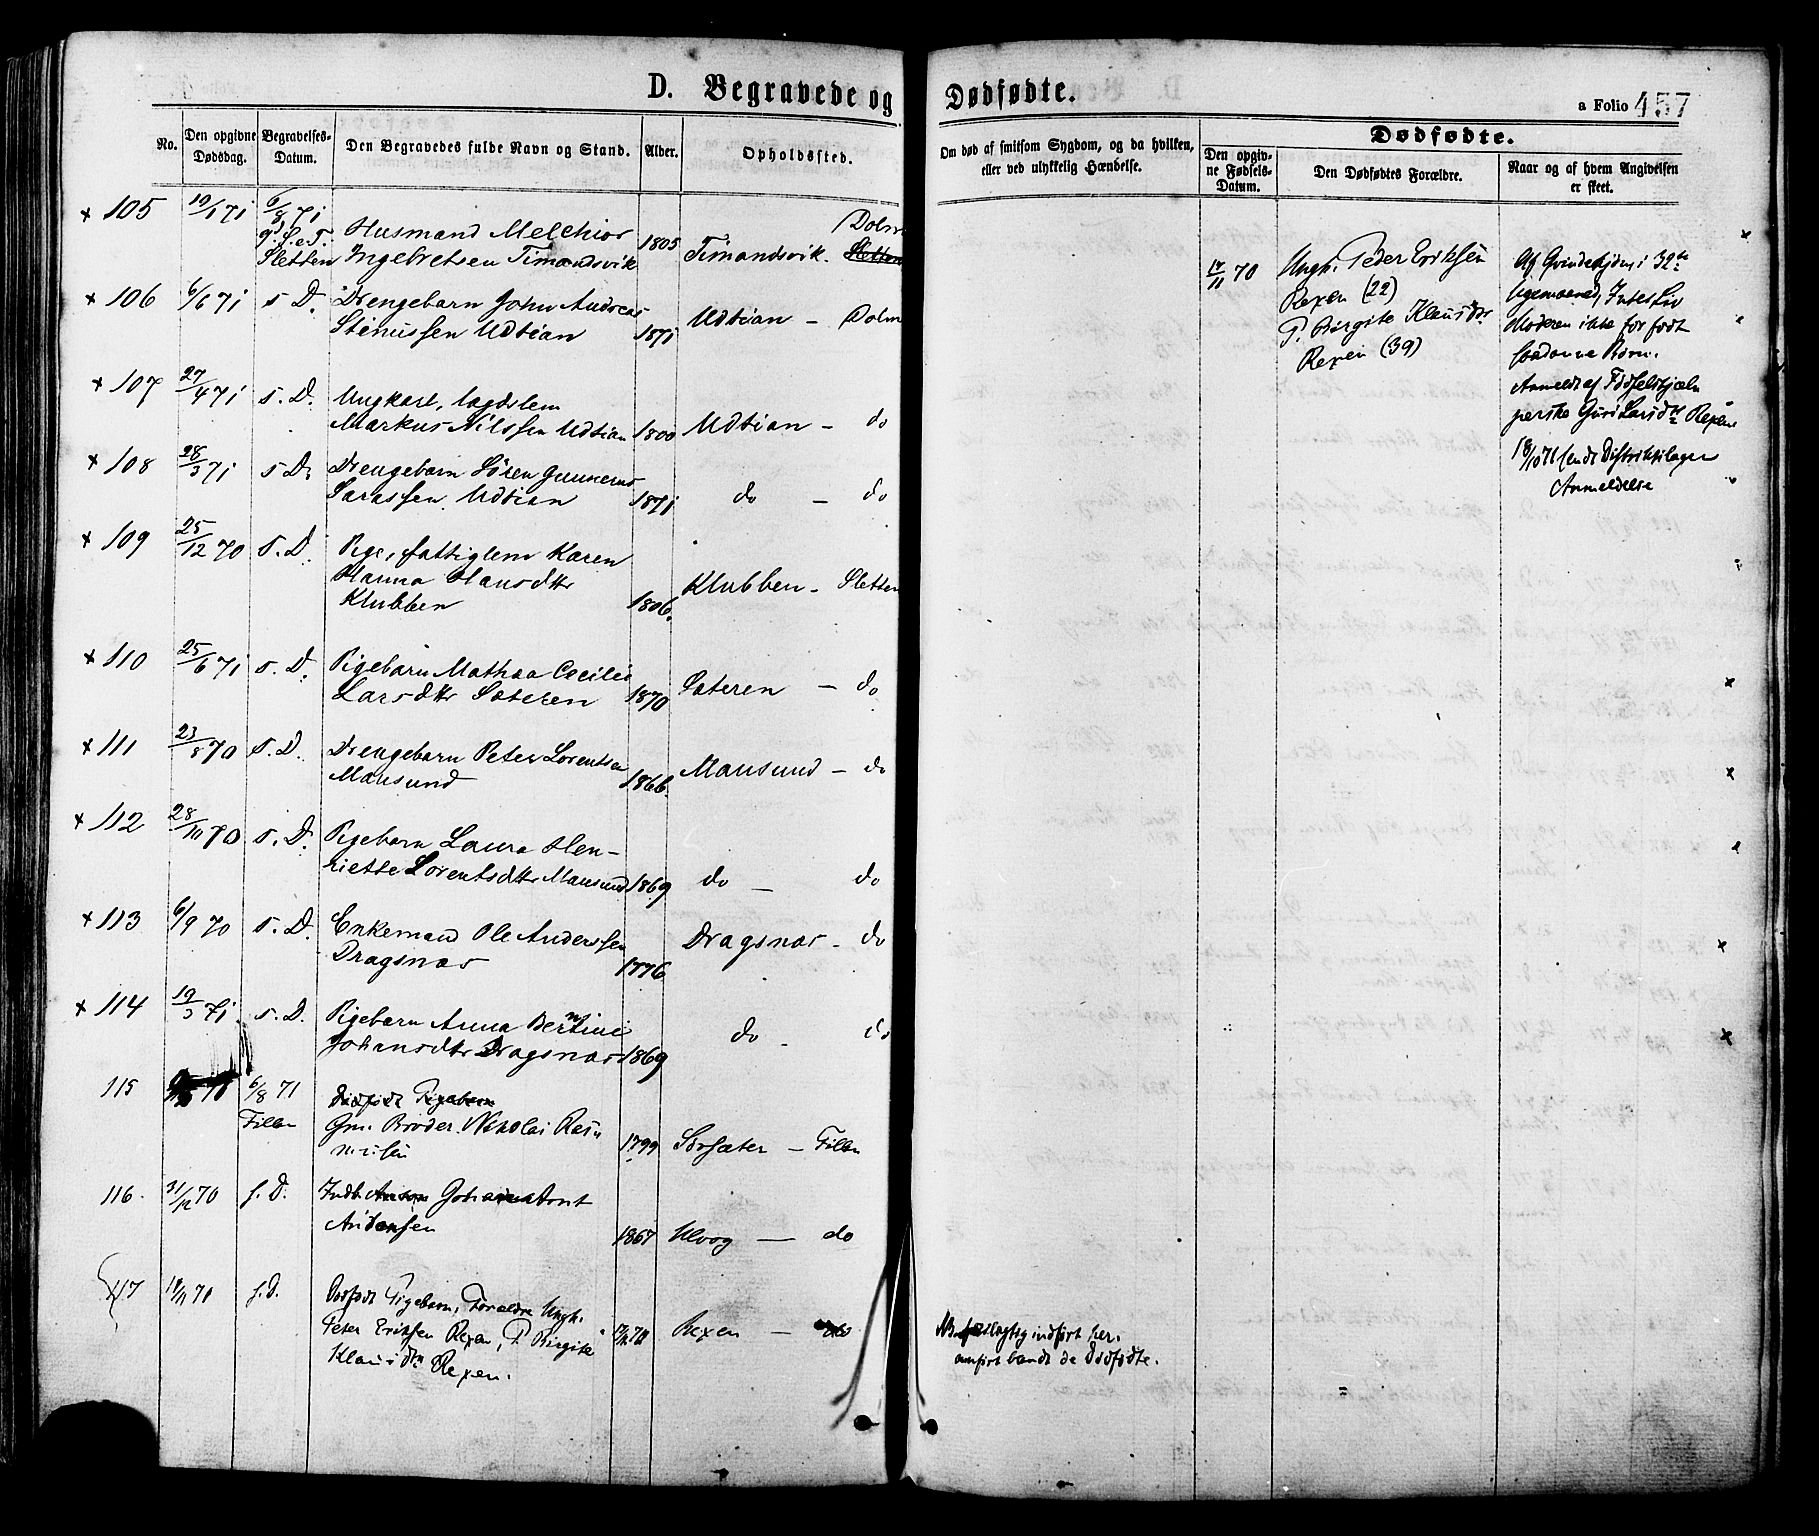 D. Begravede og Dødfødte.
a Folio 457
No.
Den opgivne Dødsdag.
Begravelses-Datum.
Den Begravedes fulde Navn og Stand.
Alder.
Opholdssted.
Om død af smitsom Sygdom, og da hvilken,
eller ved ulykkelig Hændelse.
Dødfødte.
Den opgiv-
ne Fødsels-
Datum.
Den Dødfødtes Forældre.
Naar og af hvem Angivelsen
er skeet.
+ 105 19/1 71 6/8 71 Husmand Melchior 1805 Timandsvik. Dolm
Sletten Ingebretsen Timandsvik Sletten
+ 106 6/6 71 s. D. Drengebarn John Andreas
Stinussen Udtian 1871 Udtian – Dolm
+ 107 27/4 71 s. D. Ungkarl, Lægdslem
Markus Nilssen Udtian 1800 Udtian – do
+ 108 28/3 71 s. D. Drengebarn Sören Gunnerus
Udtian 1871 do – do
+ 109 25/12 70 s. D. Pige, fattiglem Karen
Hanna Hansdtr
Klubben 1806. Klubben – Sletten
+ 110 25/6 71 s. D. Pigebarn Mathea Cecilie
Larsdtr Sæteren 1870 Sæteren – do
+ 111 23/8 70 s. D. Drengebarn Peter Lorentsen
Mausund 1866. Mausund – do
+ 112 28/10 70 s. D. Pigebarn Laura Hen-
riette Lorentsdtr Mausund 1869 do – do
+ 113 6/9 70 s. D. Enkemand Ole Anderssen
Dragsnæs 1776 Dragsnæs – do
+ 114 19/3 71 s. D. Pigebarn Anna Berntine
Johansdtr Dragsnæs 1869 do – do
115 70 6/8 71 dødfødt Pigebarn
Fillan Gm. Brøder Nikolai Ras
mussen 1799 Sørsæter – Fillan
116. 31/12 70 s. D. Indb. Johan
Andersen 1867 Ulvog – do
117 17/11 70 s. D. Dødfødt Pigebarn, Forældre Ungk.
Peter Eriksen Rexen, P. Birgite 17/11 70 Rexen – do
Klausdtr Rexen.
indført her.
anført blandt de Dødfødte.
17/11 70 Ungk. Peder Eriksen
Rexen (22)
P. Birgite Klausdtr
Rexen (39)
Af Qvindekjøn, i 32te
Ugemaaned, Intet Liv
Moderen ikke før født
saadanne Børn.
Anmeldt af Fødselshjæl-
perske Guri Larsdtr Rexen
18/10 71 sendt Distriktslægen
Anmeldelse